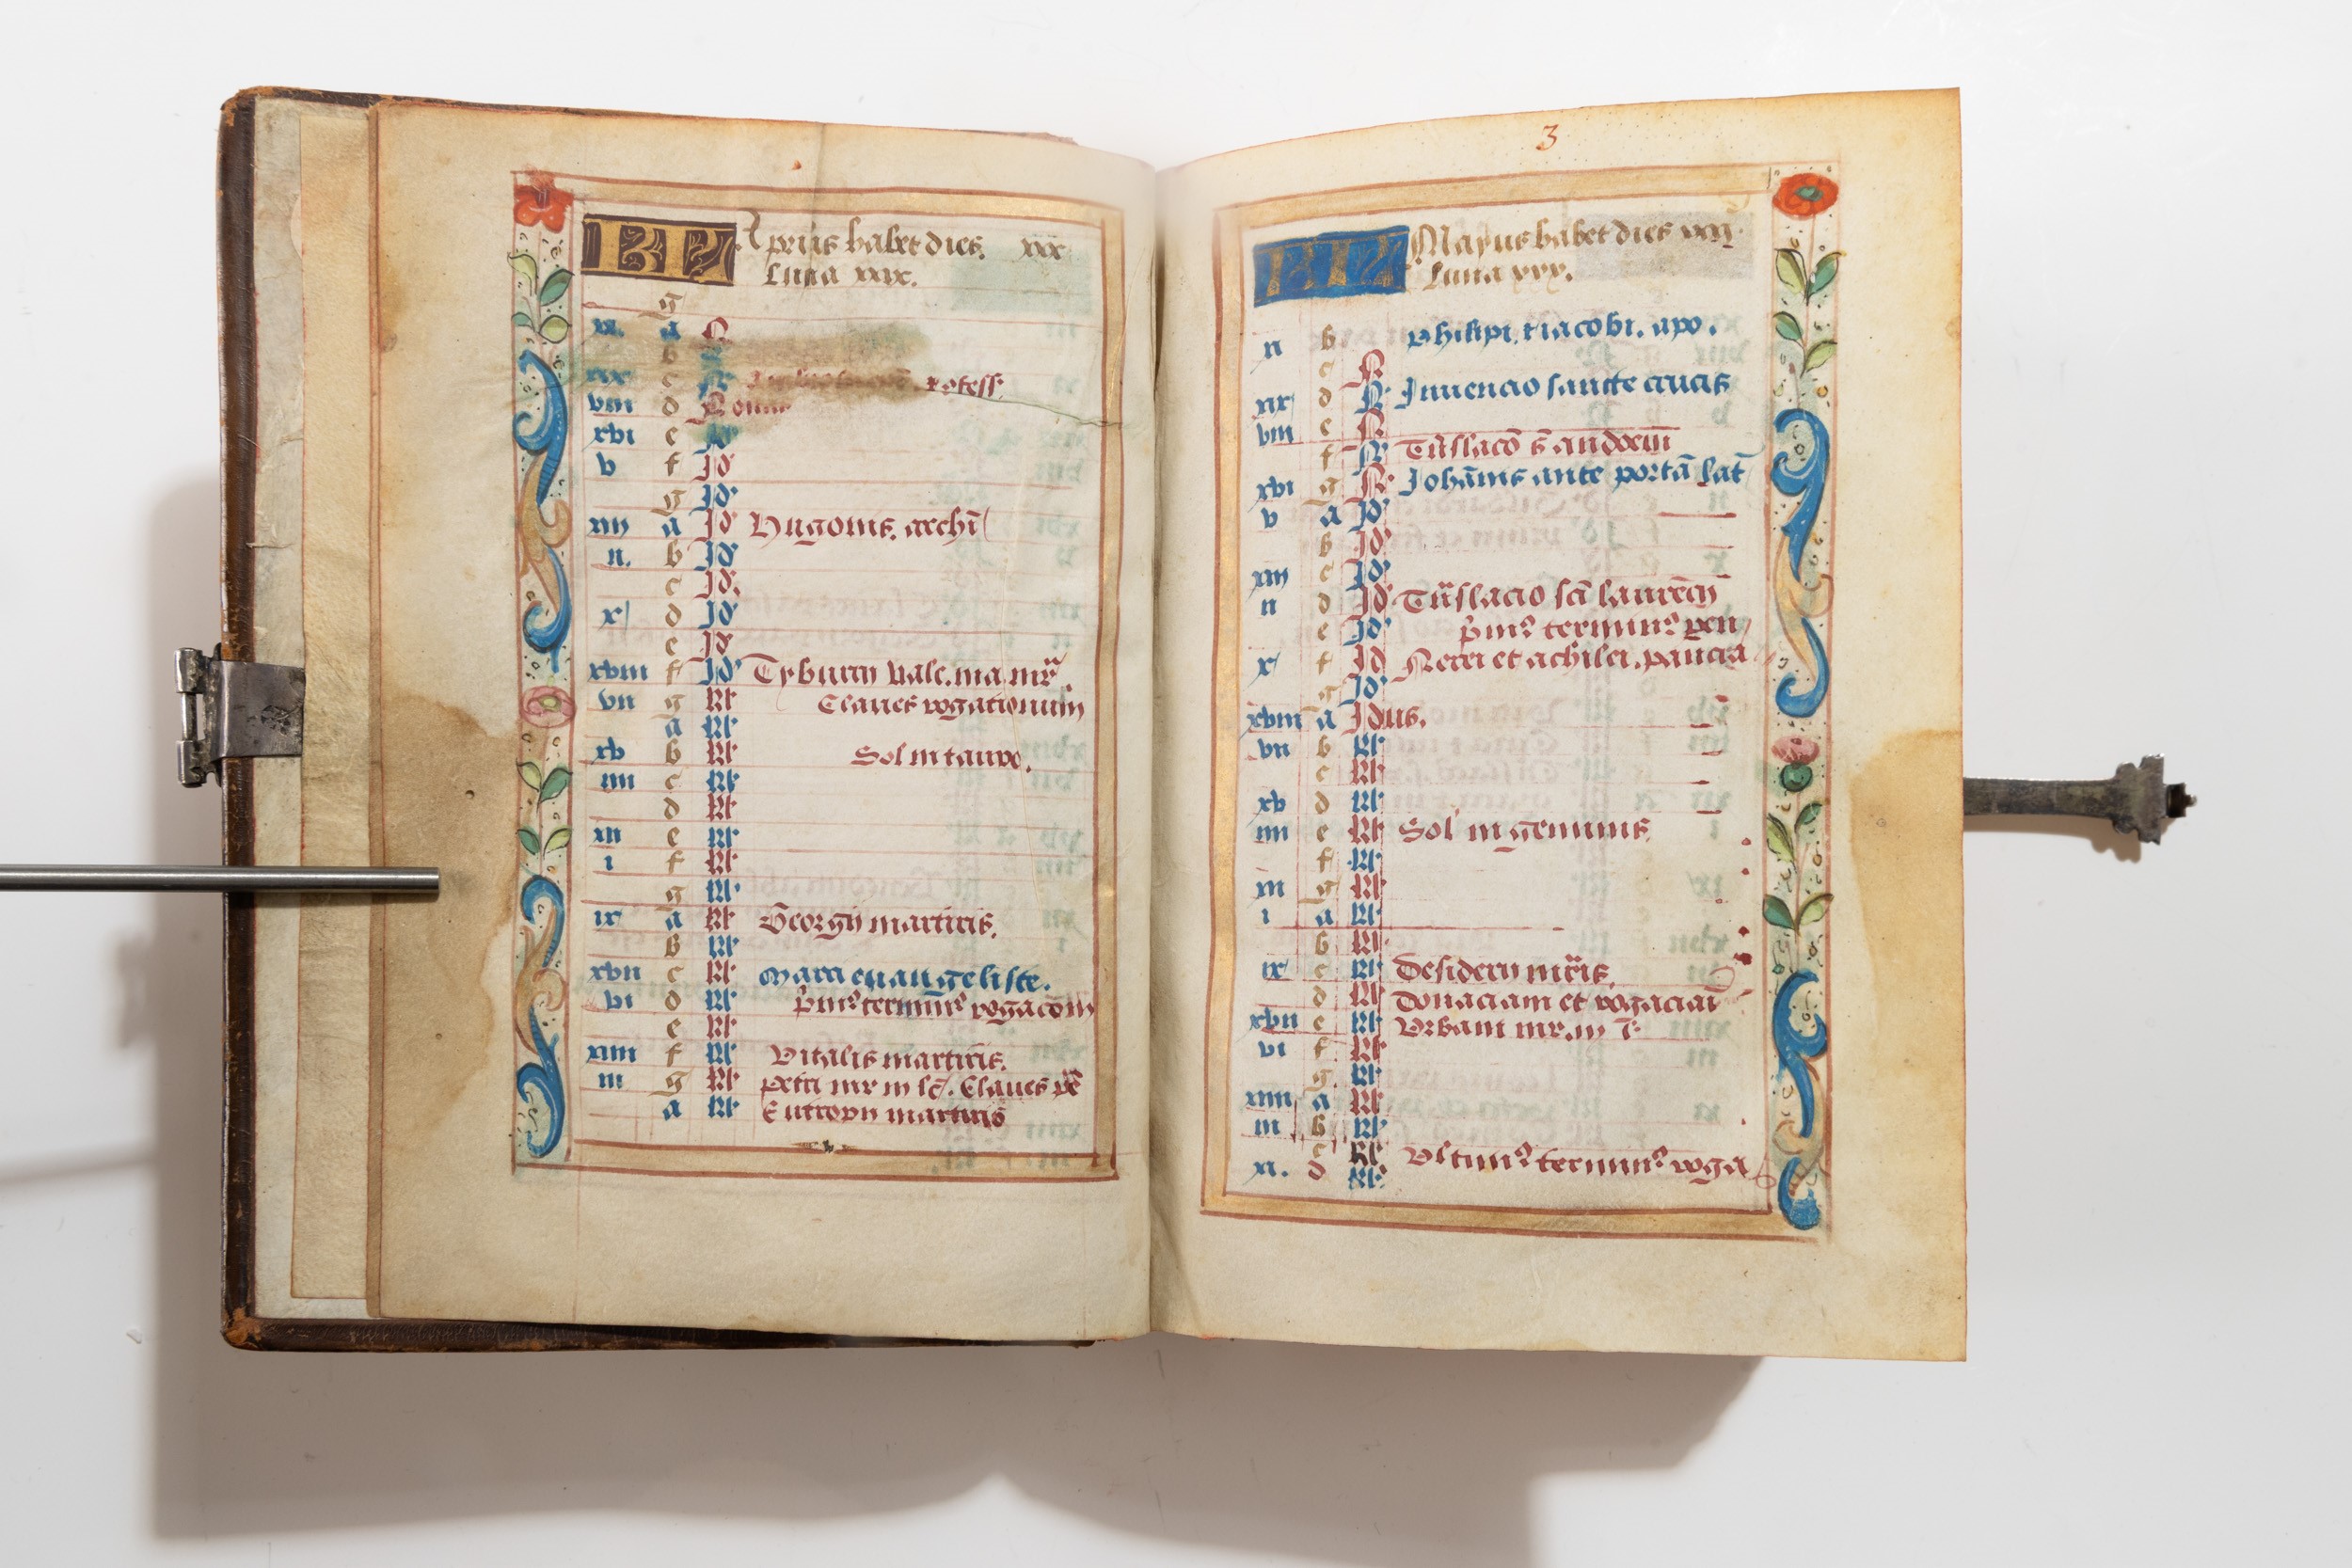 KL Aprilis habet dies. xxx
Luna xxix.
g
xi. a N
b
xix c N
viii d Nonas
xvi e Id'
v f Id'
g Id'
xiii a Id' Hugonis. archi
ii. b Id'
c Id'
x d Id'
e Id'
xviii f Id' Tyburcii Vale. ma. mr̄
vii g kl' Claues rogationum
a kl'
xv b kl' Sol in tauro.
iiii c kl'
d kl'
xii e kl'
i f kl'
g kl'
ix a kl' Georgii martiris.
b kl'
xvii c kl' Marci euangeliste.
vi d kl' p̄mus terminus rogacōm
e kl'
xiiii f kl' Vitalis martiris.
iii g kl' Petri mr m lc̄. Claues
a kl' Eutropii martiris
3
KL Mayus habet dies xxxi.
Luna xxx.
ii b Philipi. et iacobi. apo.
c N
xix d N' Inuencio sancte crucis
viii e N
f N' Tn̄slacō s̄ andoeni
xvi g N' Johānis ante portā lat
v a Id'
b Id'
xiii c Id'
ii d Id' Tn̄slacio scī laurēcii
e Id' p̄mus terminus pen
x f Id Nerei et achilei. pancra
g Id'
xviii a Idus.
vii b kl'
c kl'
xv d kl'
iiii e kl' Sol in geminis
f kl'
xii g kl'
i a kl'
b kl'
ix c kl' Desiderii mr̄is.
d kl' Donaciani et rogaciai
xvii e kl' Vrbani mr. m
vi f kl'
g. kl'
xiiii a kl'
iii b kl'
c kl'
xi. d kl' Vltimus terminus roga